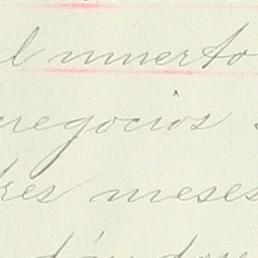 el muerto
negocios
tres meses